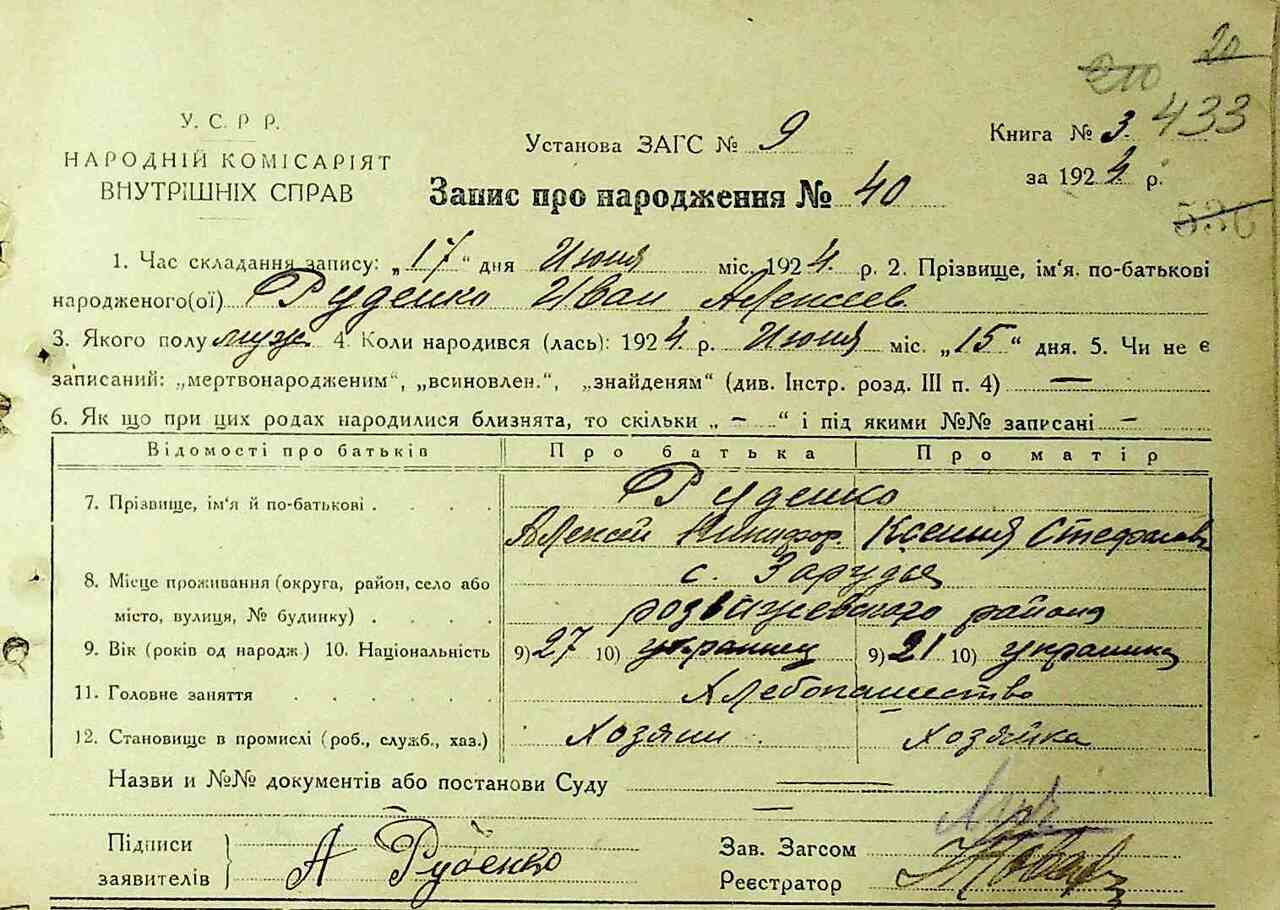 20
210
У. С. Р Р.
НАРОДНІЙ КОМІСАРІЯТ
ВНУТРІШНІХ СПРАВ
Установа ЗАГС № 9
Книга № 3. 433
за 1924 р.
Запис про народження № 40
536
1. Час складання запису: „17“ дня Июня міс. 1924. р. 2. Прізвище, ім'я. по-батькові
народженого(ої) Руденко Иван Алексеев
3. Якого полу муж. 4. Коли народився (лась): 1924 р. Июня міс. „15“ дня. 5. Чи не є
записаний: „мертвонародженим“, „всиновлен.“, „знайденям“ (див. Інстр. розд. III п. 4) —
6. Як що при цих родах народилися близнята, то скільки „ – “ і під якими №№ записані –
Відомості про батьків Про батька Про матір
7. Прізвище, ім'я й по-батькові . . . . Руденко
Алексей Никифор. Ксения Стефанов
8. Місце проживання (округа, район, село або с. Зарудья
місто, вулиця, № будинку) . . . . розважевского района
9. Вік (років од народж.) 10. Національність 9) 27 10) украинец 9) 21 10) украинка
11. Головне заняття . . . . Хлебопашество
12. Становище в промислі (роб., служб., хаз.) Хозяин . Хозяйка
Назви и №№ документів або постанови Суду —
—
Підписи
заявителів А Руденко
Зав. Загсом
Реєстратор